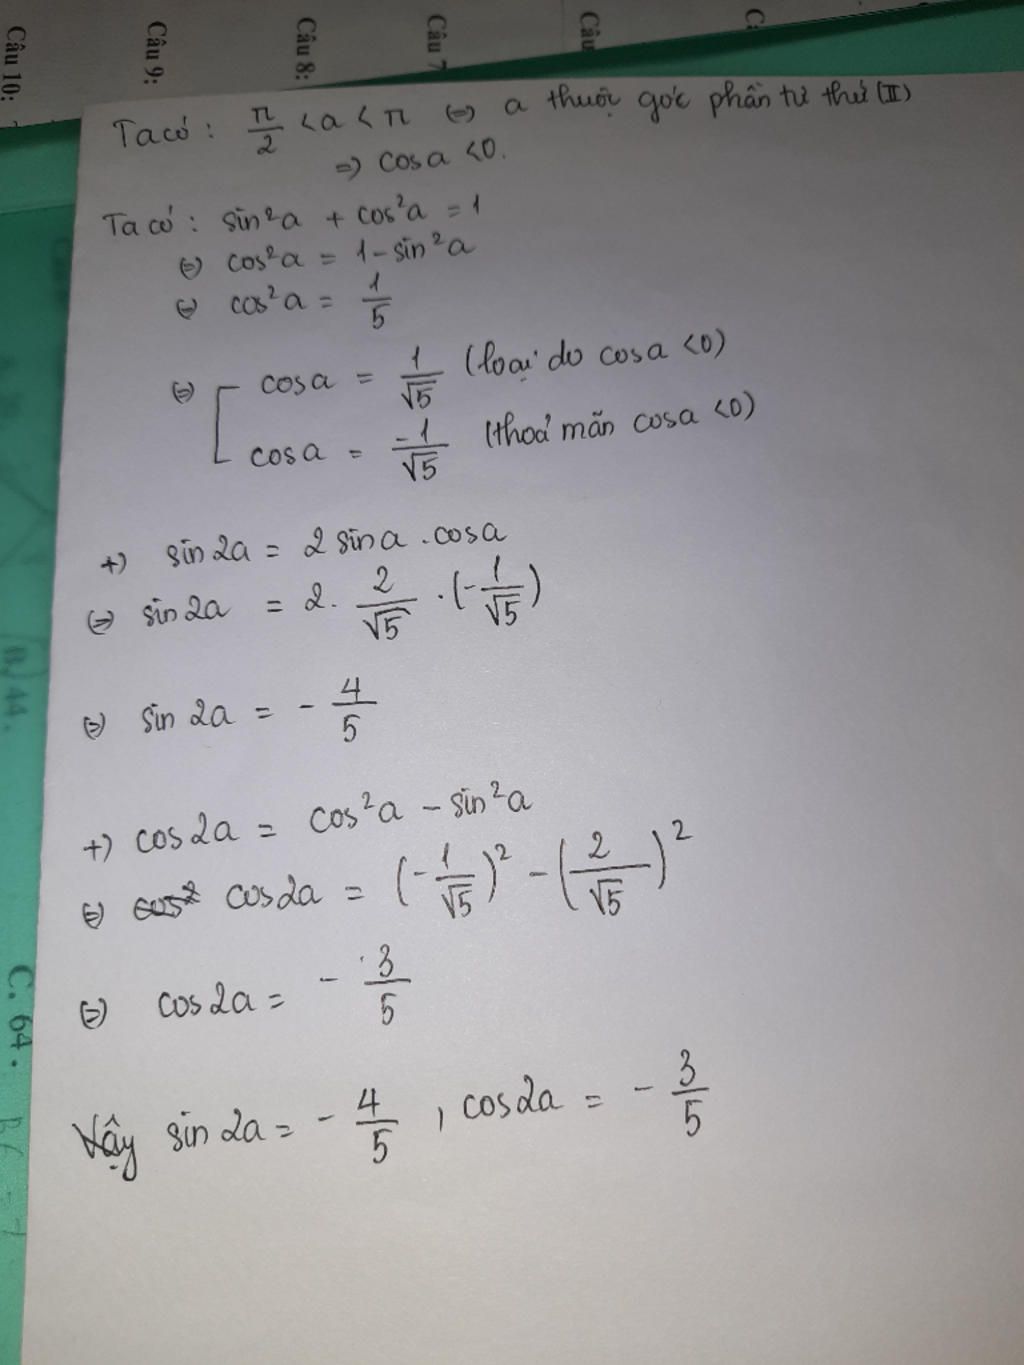 Câu 10:
Câu 9:
Câu 8:
Câu 7
Câu
Ta có: π/2 < a < π (=) a thuộc góc phần tư thứ (II)
=) cos a < 0.
Ta có: sin²a + cos²a = 1
(=) cos²a = 1 - sin²a
(=) cos²a = 1/5
(=) [ cos a = 1/√5 (loại do cos a < 0)
cos a = -1/√5 (thoả mãn cos a < 0)
+) sin 2a = 2 sin a . cos a
(=) sin 2a = 2 . 2/√5 . (-1/√5)
(=) sin 2a = - 4/5
+) cos 2a = cos²a - sin²a
(=) cos 2a = (-1/√5)² - (2/√5)²
(=) cos 2a = - 3/5
Vậy sin 2a = - 4/5 , cos 2a = - 3/5
B. 44.
C. 64.